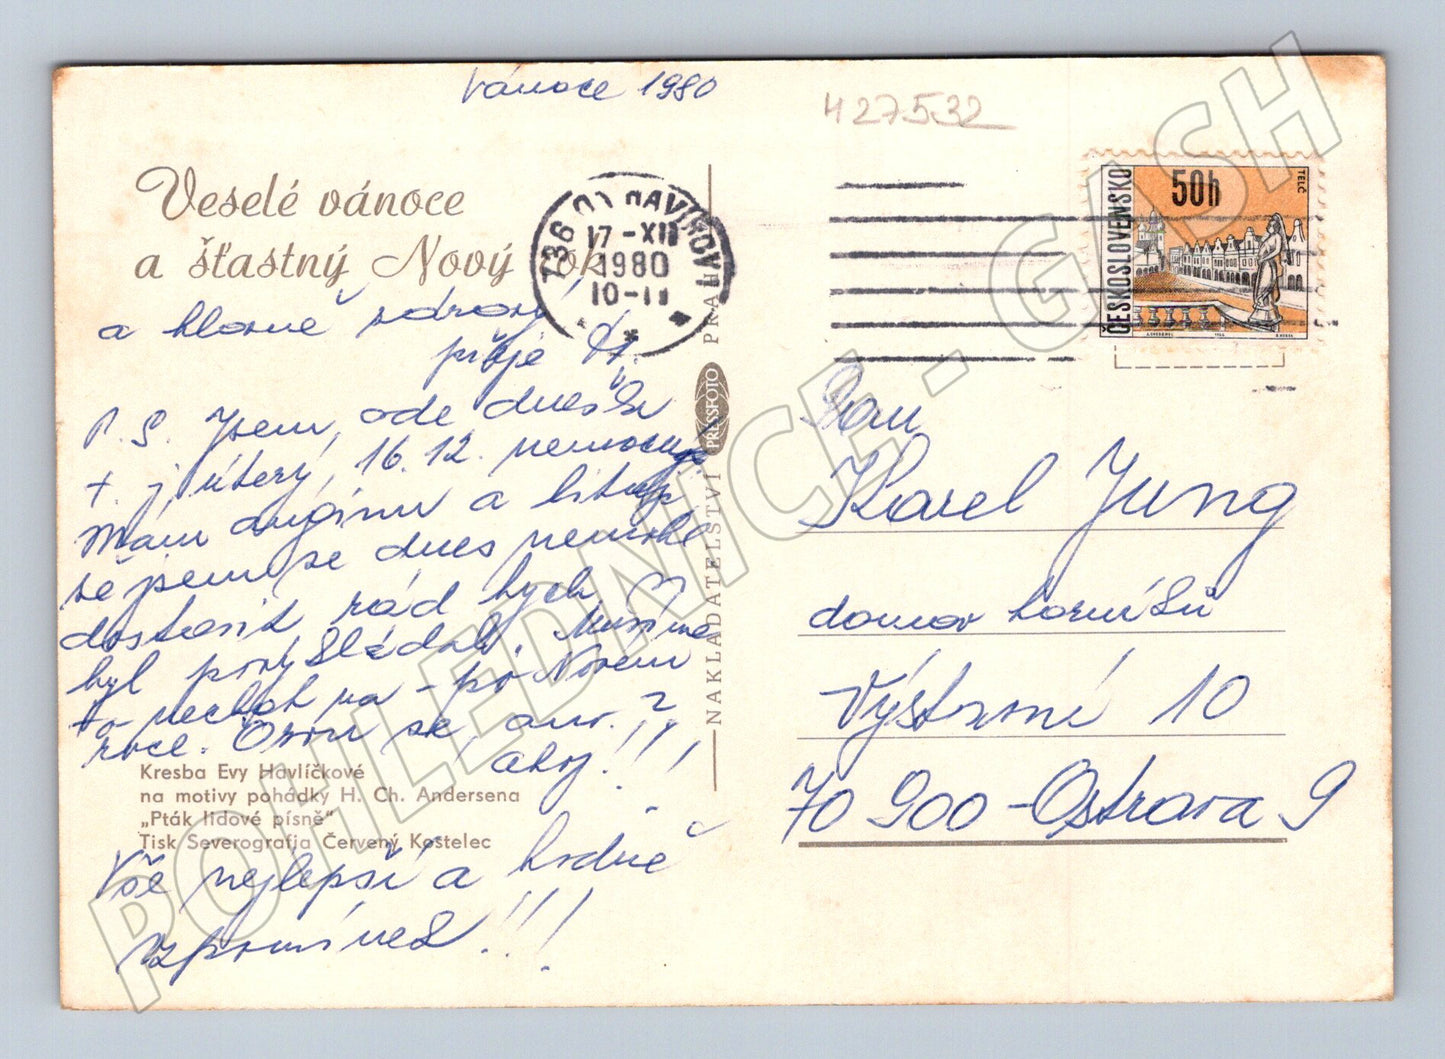 Vánoce 1980
427532
Veselé vánoce
a šťastný Nový rok
a hlavně zdraví
přeje
P. S. Jsem, ode dneška
t. j. úterý, 16. 12. nemocný.
Mám angínu a
jsem se dnes
dostavit rád bych
byl Musíme
to nechat na - po Novém
roce. Ozvu se, ano?
ahoj!!!
Kresba Evy Havlíčkové
na motivy pohádky H. Ch. Andersena
„Pták lidové písně"
Tisk Severografia Červený Kostelec
Vše nejlepší a hodně
vzpomínek!!!
736 01 HAVÍŘOV 1
17-XII
1980
10-11
NAKLADATELSTVÍ PRESSFOTO PRAHA
ČESKOSLOVENSKO
50h
TELČ
Pan
Karel Jung
domov horníků
Výstavní 10
70 900 - Ostrava 9
POHLEDNICE - GASH